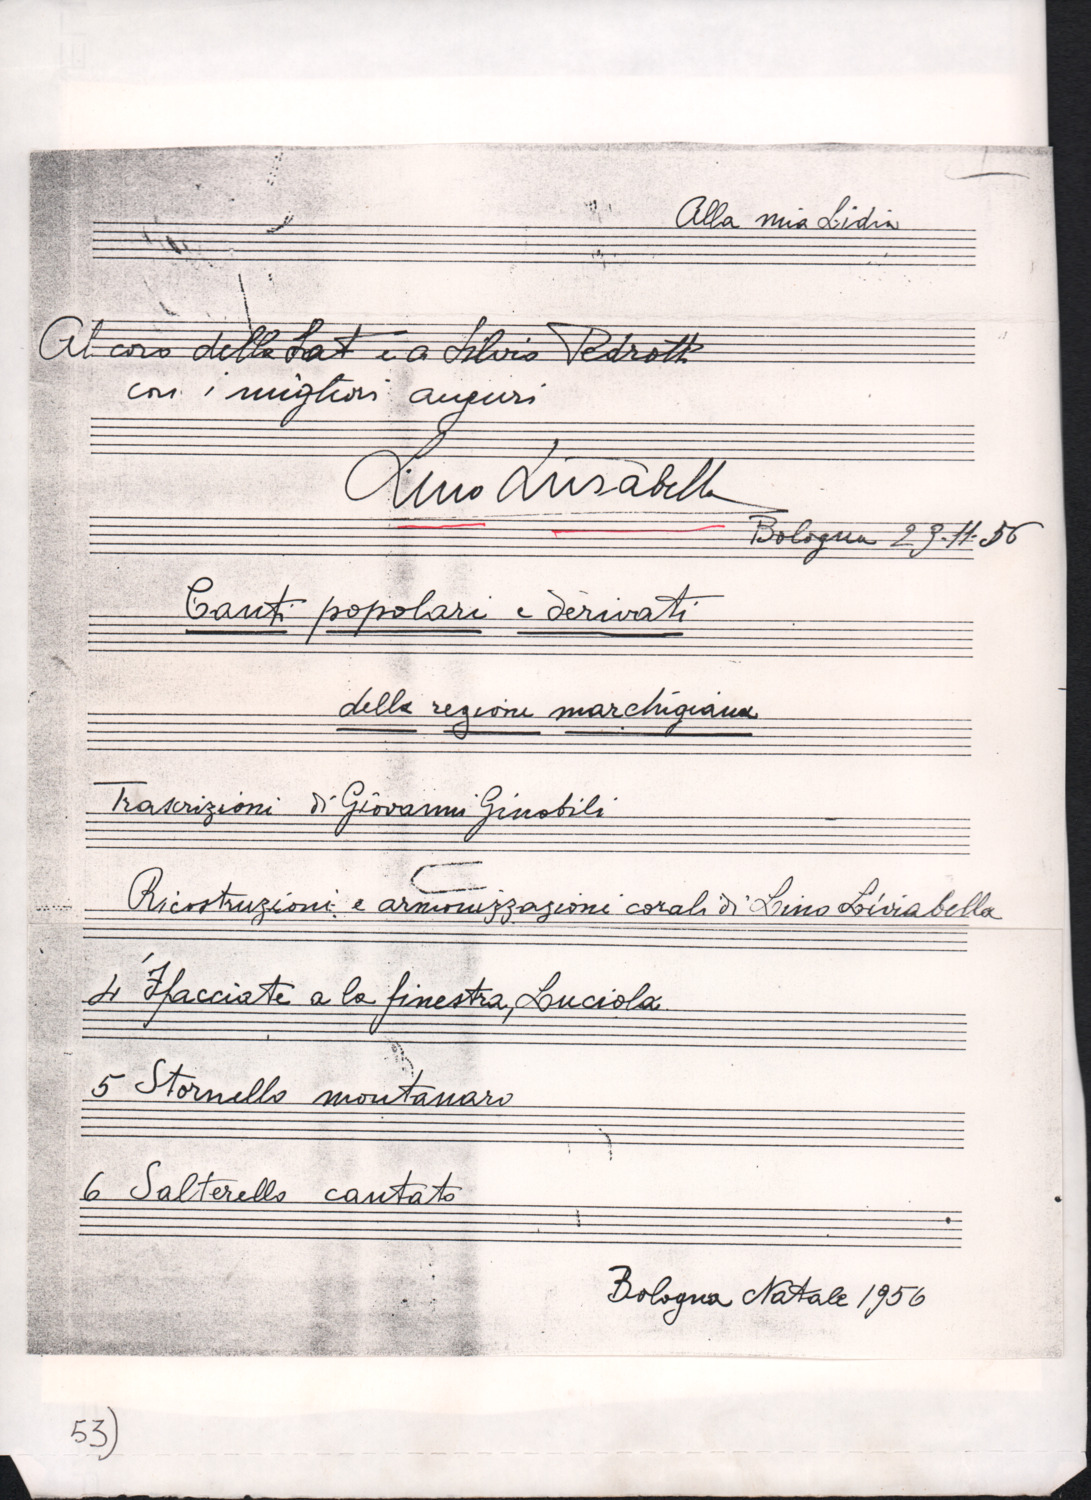 Alla mia Lidia
Al coro della Sat e a Silvio Pedrotti
con i migliori auguri
Lino Liviabella
Bologna 29-11-56
Canti popolari e derivati
della regione marchigiana
Trascrizioni di Giovanni Ginobili
Ricostruzioni e armonizzazioni corali di Lino Liviabella
4 'Ffacciate a la finestra, Luciola
5 Stornello montanaro
6 Salterello cantato
Bologna Natale 1956
53)